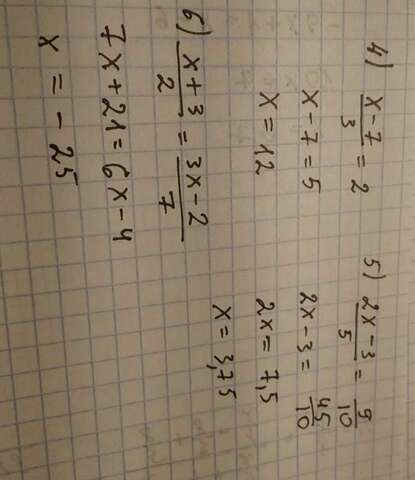 4) (x-7)/3 = 2
x-7=5
x=12
5) (2x-3)/5 = 9/10
2x-3= 45/10
2x=7,5
x=3,75
6) (x+3)/2 = (3x-2)/7
7x+21=6x-4
x=-25